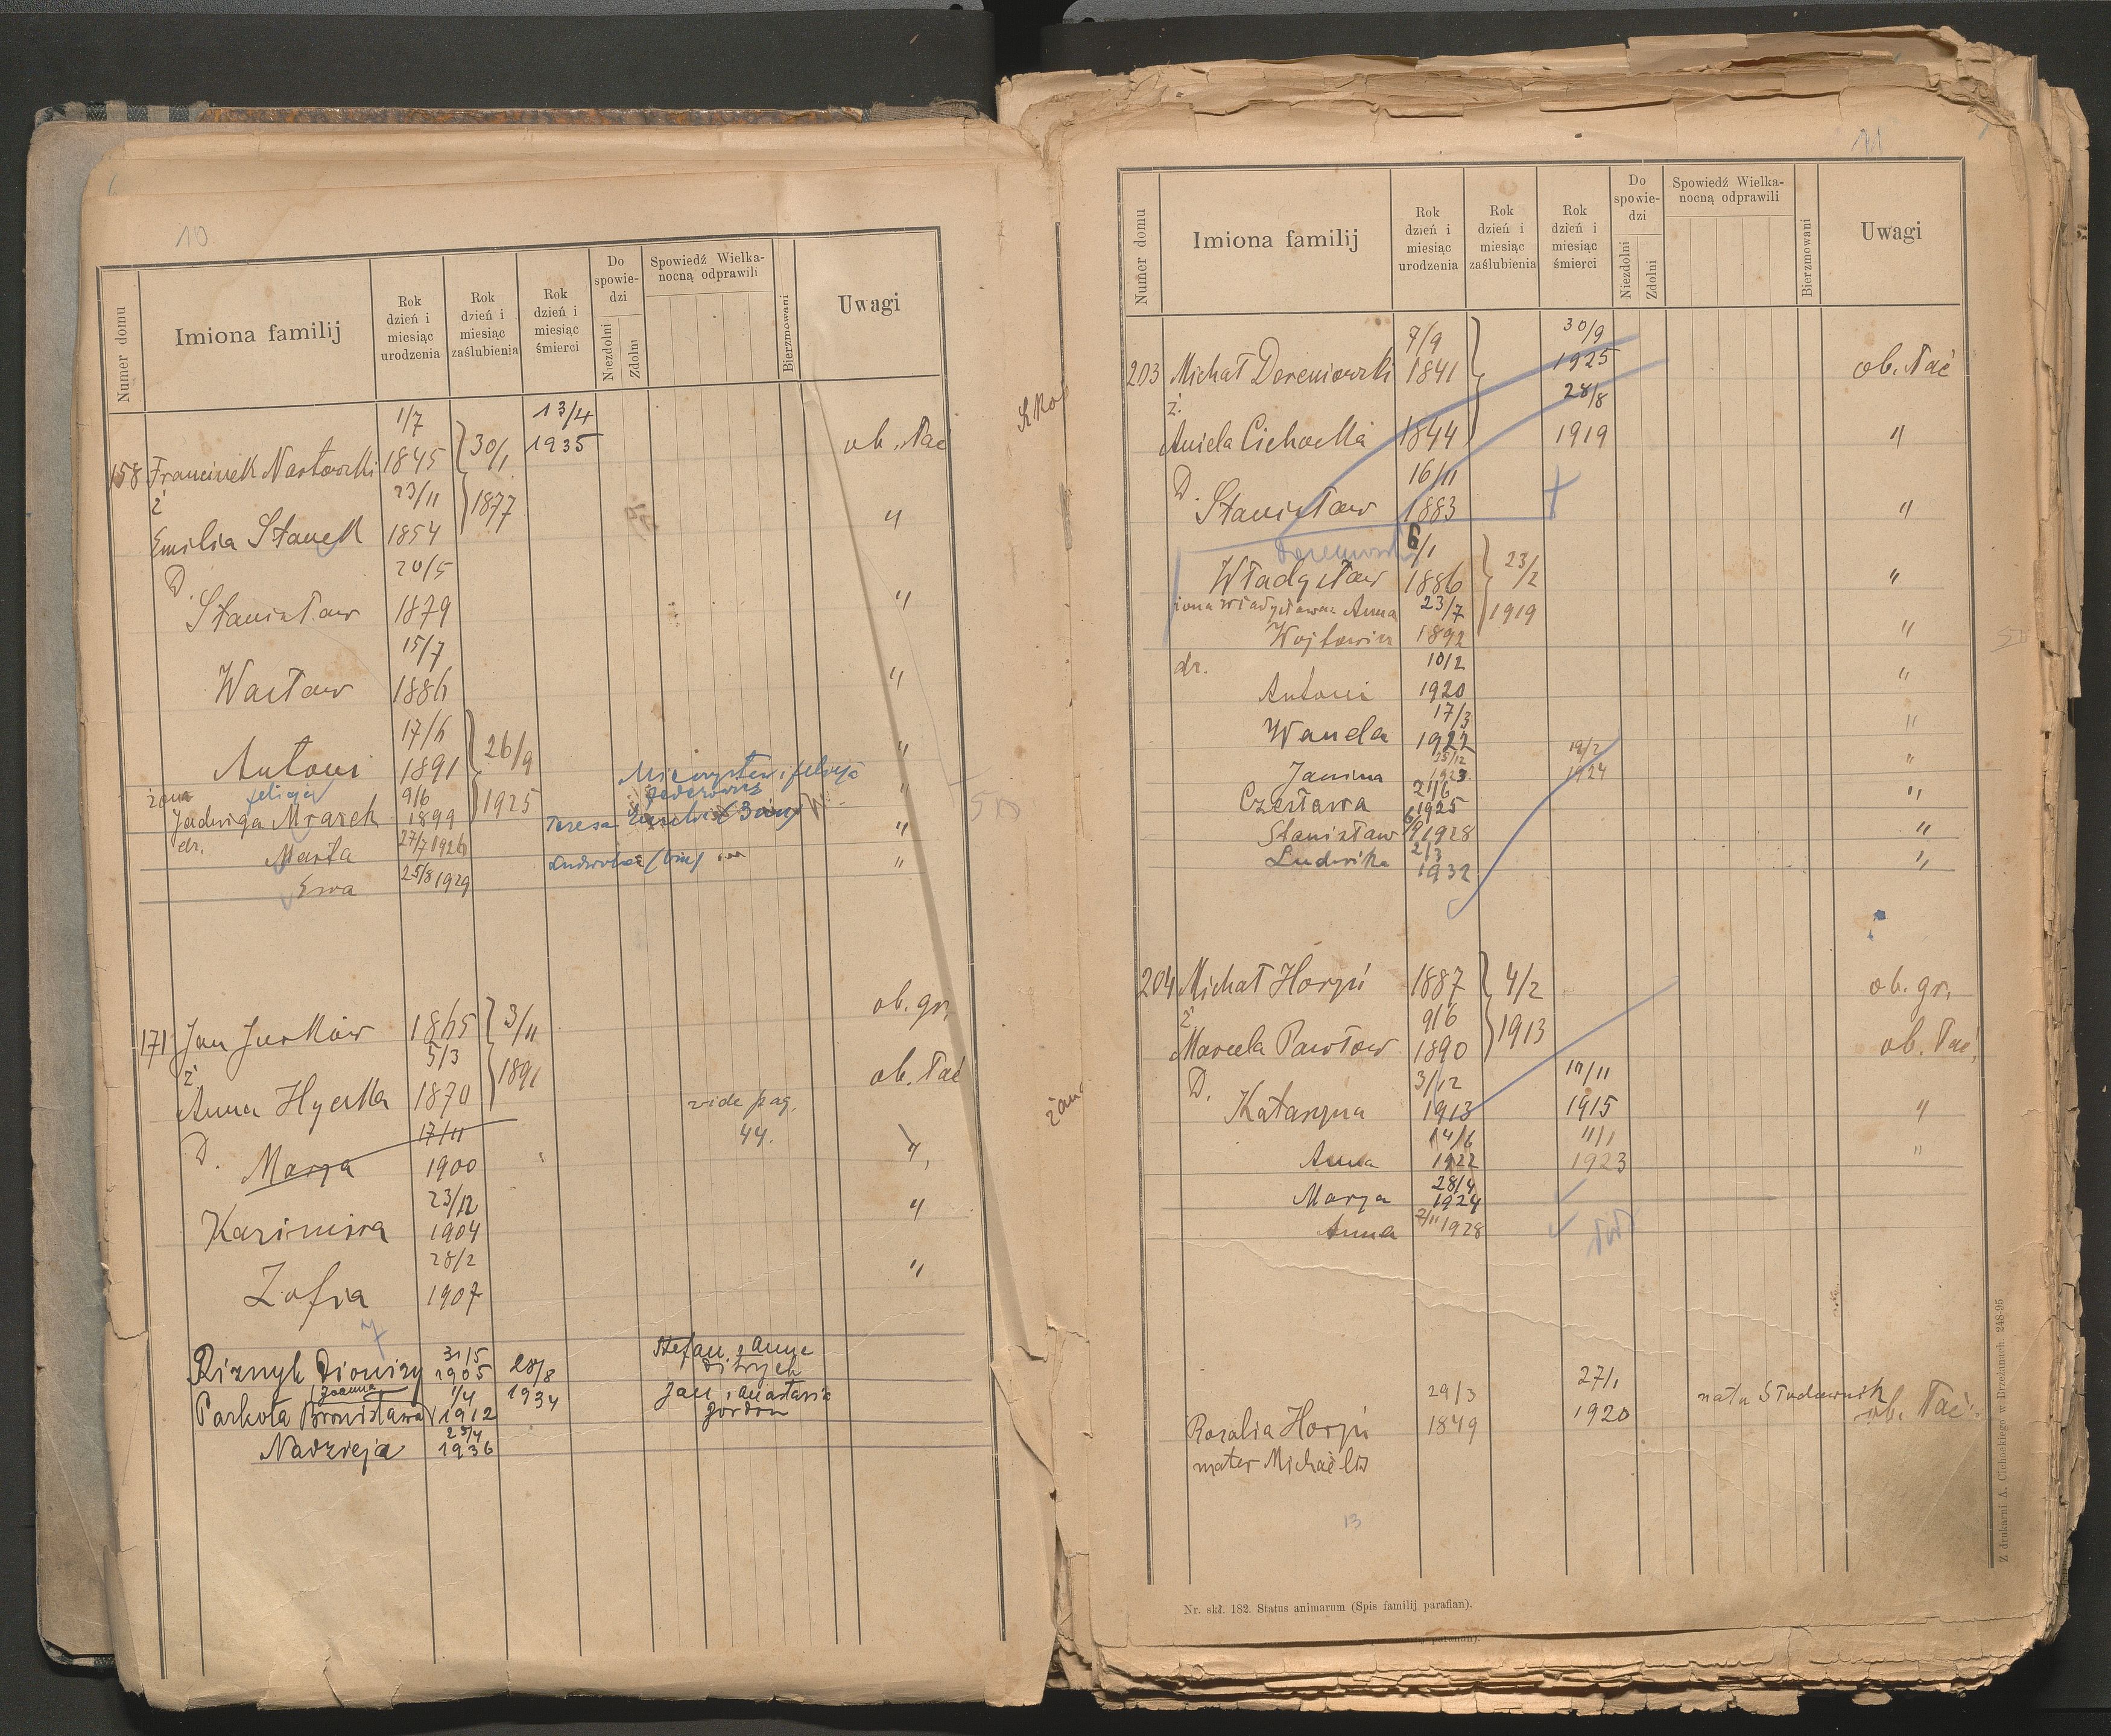 10
Numer domu
Imiona familij
Rok dzień i miesiąc urodzenia
Rok dzień i miesiąc zaślubienia
Rok dzień i miesiąc śmierci
Do spowie-dzi
Niezdolni
Zdolni
Spowiedź Wielka-nocną odprawili
Bierzmowani
Uwagi
1/7 13/4
158 1845 30/1 1935 ob. łać
23/11 1877
ż
Emilia Stanek 1854 "
D. 20/5
Stanisław 1879 "
15/7
Wacław 1886 "
17/6 26/9
Antoni 1891 "
żona 9/6 1925
Jadwiga Mrazek 1899 "
Teresa
dr. Marta 27/7 1926 "
Ewa 25/8 1929 "
ob. gr.
171 Jan Jurków 1865 3/11
ż. 5/3 1891
Anna 1870 ob. łać
vide pag.
D. 17/11 44.
Marya 1900 "
23/12
Kazimira 1904 "
28/2
Zofia 1907 "
31/5 Stefan i Anna
Riznyk Dionizy 1905 28/8 Ditrych
Joanna 1/4 1934 Jan i Anastazia
Parkoła Bronisława 1912 Gordon
25/4
Nadzieja 1936
11
Numer domu
Imiona familij
Rok dzień i miesiąc urodzenia
Rok dzień i miesiąc zaślubienia
Rok dzień i miesiąc śmierci
Do spowie-dzi
Niezdolni
Zdolni
Spowiedź Wielka-nocną odprawili
Bierzmowani
Uwagi
7/9 30/9
203 Michał Dereniowski 1841 1925 ob. łać
ż. 28/8
Aniela Cichocka 1844 1919 "
D. 16/11
Stanisław 1883 "
6/1 23/2
Władysław 1886 "
żona Władysława Anna 23/7 1919
Wojtowicz 1892 "
dr. 10/2
Antoni 1920 "
17/3
Wanda 1922 "
25/12 19/2
Janina 1923 1924 "
21/6
Czesława 1925 "
Stanisław 1928 "
2/3
Ludwika 1932 "
204 Michał Horpi 1887 4/2 ob. gr.
ż 9/6
Marcela Pawłow 1890 1913 ob. łać
D. 3/12 10/11
Katarzyna 1913 1915 "
14/6 11/1
Anna 1922 1923 "
28/4
Marya 1924
Anna 2/11 1928
29/3 27/1
Rozalia Horpi 1849 1920 ob. łać.
mater Michaëlis
13
Nr. skł. 182. Status animarum (Spis familij parafian).
Z drukarni A. Cichockiego w Brzeżanach 248-95